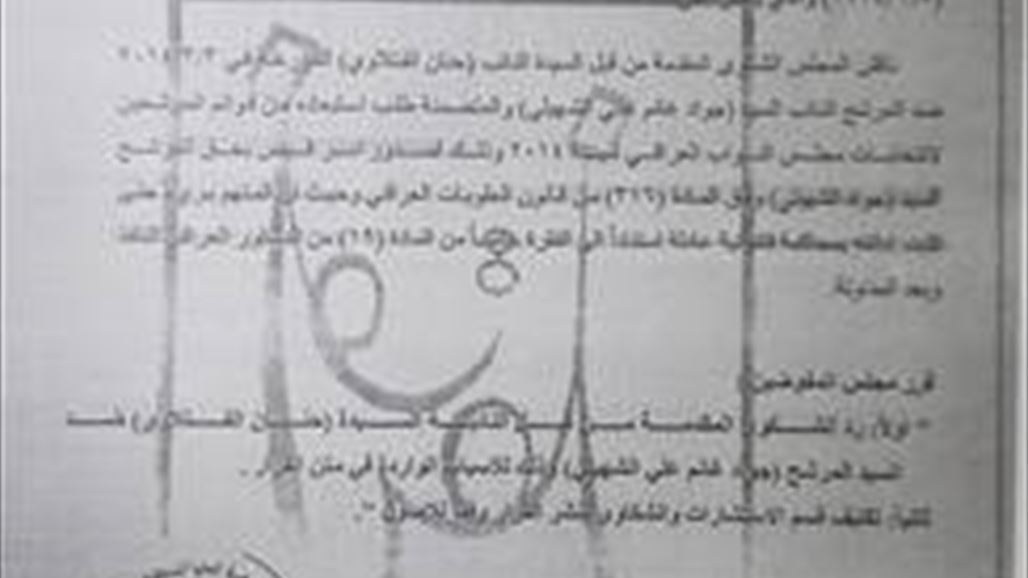 ناقش المجلس الشكوى المقدمة من قبل السيدة النائب (حنان الفتلاوي) في ٢٠١٤/٣/٣
ضد المرشح النائب السيد (جواد غانم علي الشهيلي) والمتضمنة طلب استبعاده من قوائم المرشحين
لانتخابات مجلس النواب العراقي لسنة ٢٠١٤ وذلك لصدور امر قبض بحق المرشح
السيد (جواد الشهيلي) وفق المادة (٣١٦) من قانون العقوبات العراقي وحيث ان المتهم بريء حتى
تثبت ادانته بمحاكمة قانونية عادلة استناداً الى الفقرة من المادة (١٩) من الدستور العراقي النافذ
وبعد المداولة
قرر مجلس المفوضين
" اولاً: رد الشكوى المقدمة من السيدة (حنان الفتلاوي) ضد
السيد المرشح (جواد غانم علي الشهيلي) وذلك للاسباب الواردة في متن القرار .
ثانياً: تكليف قسم الاستشارات والشكاوى بنشر القرار وفقاً للاصول ".